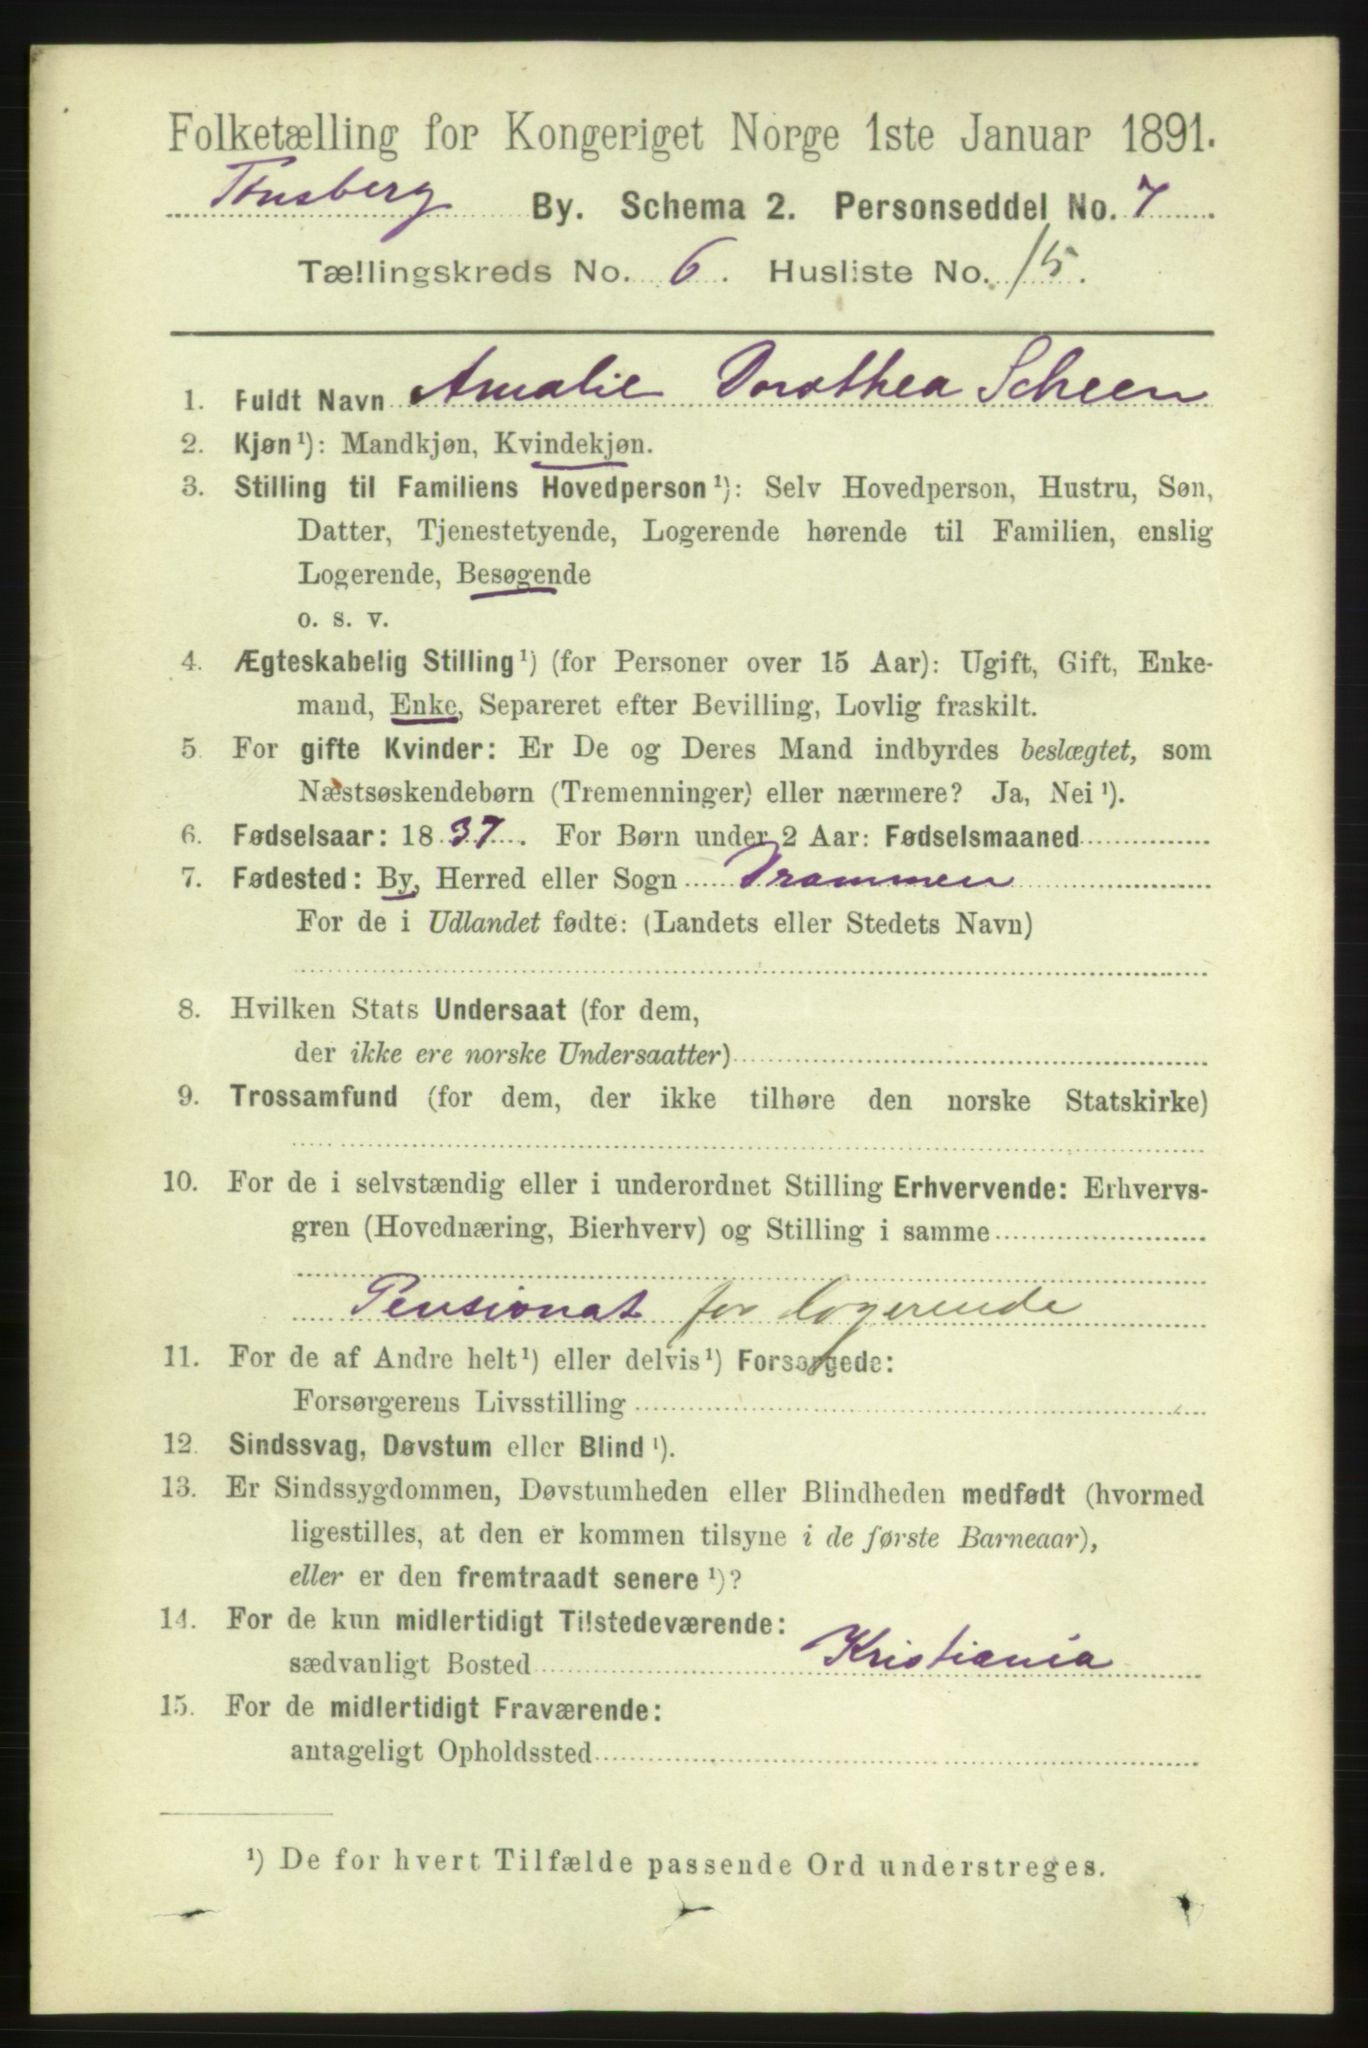 Folketælling for Kongeriget Norge 1ste Januar 1891.
Tønsberg By. Schema 2. Personseddel No. 7
Tællingskreds No. 6. Husliste No. 15.
1. Fuldt Navn Amalie Dorothea Scheen
2. Kjøn¹): Mandkjøn, Kvindekjøn.
3. Stilling til Familiens Hovedperson¹): Selv Hovedperson, Hustru, Søn,
Datter, Tjenestetyende, Logerende hørende til Familien, enslig
Logerende, Besøgende
o. s. v.
4. Ægteskabelig Stilling¹) (for Personer over 15 Aar): Ugift, Gift, Enke-
mand, Enke, Separeret efter Bevilling, Lovlig fraskilt.
5. For gifte Kvinder: Er De og Deres Mand indbyrdes beslægtet, som
Næstsøskendebørn (Tremenninger) eller nærmere? Ja, Nei¹).
6. Fødselsaar: 1837. For Børn under 2 Aar: Fødselsmaaned
7. Fødested: By, Herred eller Sogn Drammen
For de i Udlandet fødte: (Landets eller Stedets Navn)
8. Hvilken Stats Undersaat (for dem,
der ikke ere norske Undersaatter)
9. Trossamfund (for dem, der ikke tilhøre den norske Statskirke)
10. For de i selvstændig eller i underordnet Stilling Erhvervende: Erhvervs-
gren (Hovednæring, Bierhverv) og Stilling i samme
Pensionat for logerende
11. For de af Andre helt¹) eller delvis¹) Forsørgede:
Forsørgerens Livsstilling
12. Sindssvag, Døvstum eller Blind¹).
13. Er Sindssygdommen, Døvstumheden eller Blindheden medfødt (hvormed
ligestilles, at den er kommen tilsyne i de første Barneaar),
eller er den fremtraadt senere¹)?
14. For de kun midlertidigt Tilstedeværende:
sædvanligt Bosted Kristiania
15. For de midlertidigt Fraværende:
antageligt Opholdssted
¹) De for hvert Tilfælde passende Ord understreges.